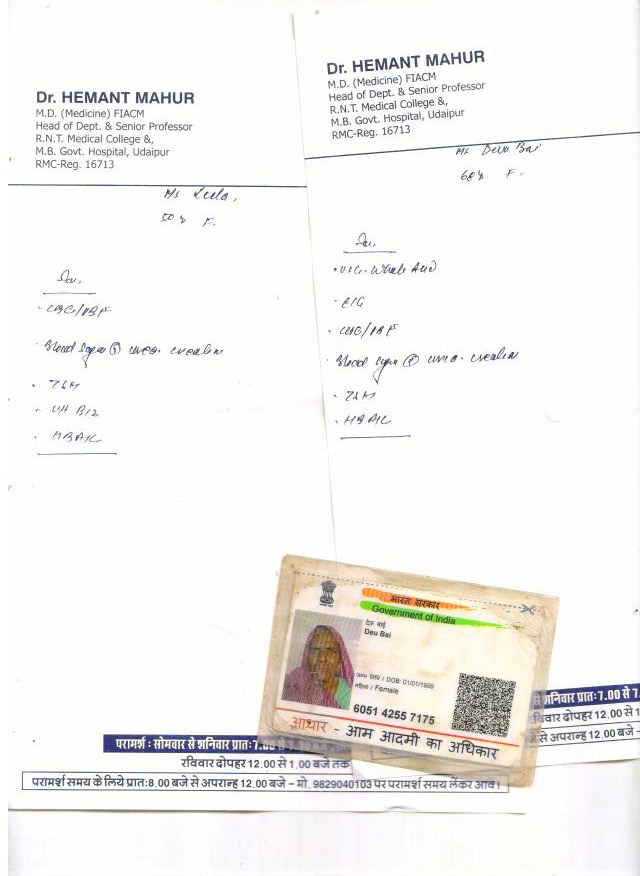 Dr. HEMANT MAHUR
M.D. (Medicine) FIACM
Head of Dept. & Senior Professor
R.N.T. Medical College &,
M.B. Govt. Hospital, Udaipur
RMC-Reg. 16713
Ms Leela.
50 y F.
Inv.
- CBC/PBF
Blood Sugar urea. creatin
- TSH
- Vit B12
- HBA1C
Dr. HEMANT MAHUR
M.D. (Medicine) FIACM
Head of Dept. & Senior Professor
R.N.T. Medical College &,
M.B. Govt. Hospital, Udaipur
RMC-Reg. 16713
Ms Deva Bai
68 y F.
Inv.
- USG. Whole Abd
- ECG
- CBC/PBF
Blood Sugar urea. creatin
- TSH
- HBA1C
भारत सरकार
Government of India
देऊ बाई
Deu Bai
जन्म तिथि / DOB: 01/01/1956
महिला / Female
6051 4255 7175
आधार - आम आदमी का अधिकार
परामर्श : सोमवार से शनिवार प्रातः 7.00
रविवार दोपहर 12.00 से 1.00 बजे तक
परामर्श समय के लिये प्रातः 8.00 बजे से अपरान्ह 12.00 बजे - मो. 9829040103 पर परामर्श समय लेंकर आवें।
शनिवार प्रातः 7.00 से 7.
विवार दोपहर 12.00 से 1
से अपरान्ह 12.00 बजे -